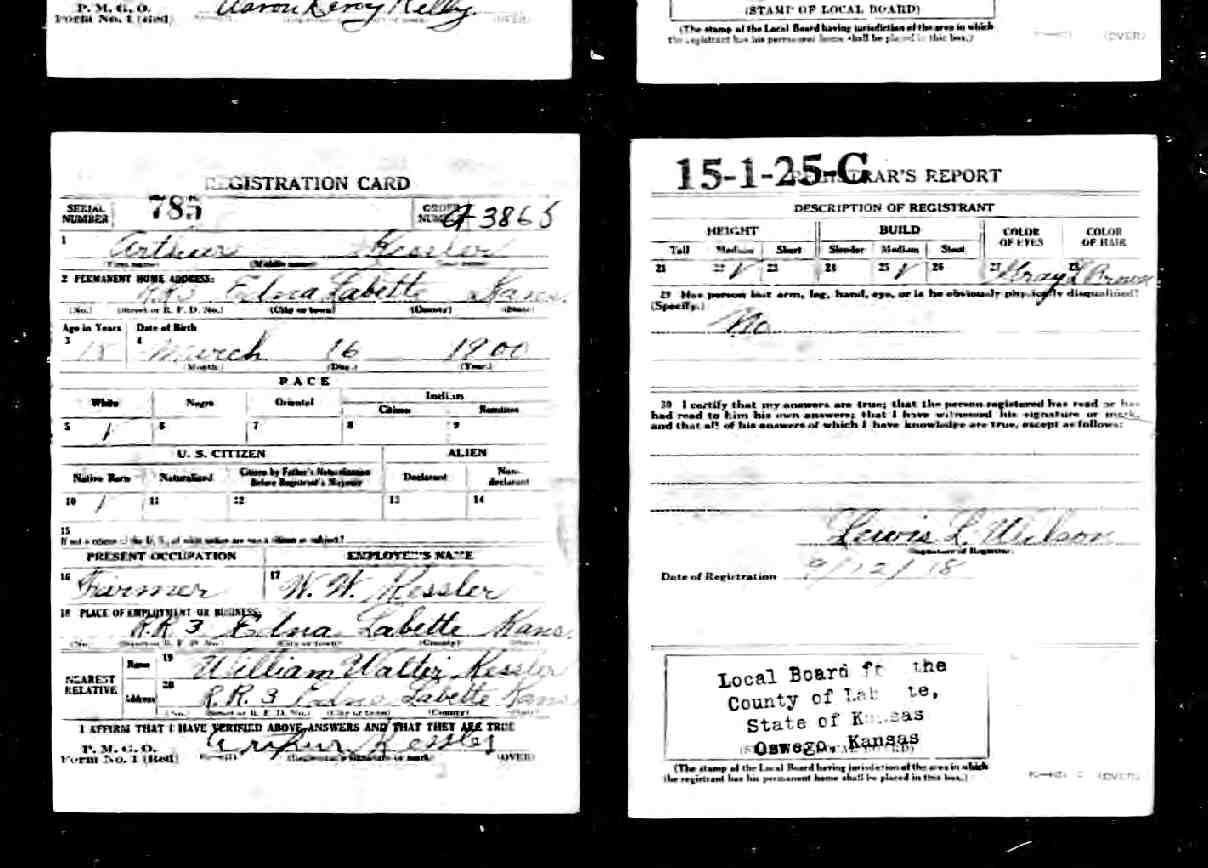 P. M. G. O.
Form No. 1 (Red)
Aaron Leroy Kelly
(OVER)
(STAMP OF LOCAL BOARD)
(The stamp of the Local Board having jurisdiction of the area in which
the registrant has his permanent home shall be placed in this box.)
(OVER)
REGISTRATION CARD
SERIAL NUMBER 785
ORDER NUMBER A 3865
1 Arthur Kessler
(First name) (Middle name)
2 PERMANENT HOME ADDRESS:
R.R. 3 Edna Labette Kans.
(No.) (Street or R. F. D. No.) (City or town) (County) (State)
Age in Years Date of Birth
3 18 4 March 16 1900
(Month) (Day) (Year)
RACE
White Negro Oriental Indian
Citizen Noncitizen
5 6 7 8 9
U. S. CITIZEN ALIEN
Native Born Naturalized Citizen by Father's Naturalization Before Registrant's Majority Declarant Non-declarant
10 11 12 13 14
15
If not a citizen of the U. S., of what nation are you a citizen or subject?
PRESENT OCCUPATION EMPLOYER'S NAME
16 Farmer 17 W. W. Kessler
18 PLACE OF EMPLOYMENT OR BUSINESS:
R.R. 3 Edna Labette Kans.
(No.) (Street or R. F. D. No.) (City or town) (County) (State)
NEAREST RELATIVE
Name 19 William Walter Kessler
Address 20 R.R. 3 Edna Labette Kans
(No.) (Street or R. F. D. No.) (City or town) (County) (State)
I AFFIRM THAT I HAVE VERIFIED ABOVE ANSWERS AND THAT THEY ARE TRUE
P. M. G. O.
Form No. 1 (Red)
Arthur Kessler
(Registrant's signature or mark) (OVER)
15-1-25-C
REGISTRAR'S REPORT
DESCRIPTION OF REGISTRANT
HEIGHT BUILD COLOR OF EYES COLOR OF HAIR
Tall Medium Short Slender Medium Stout
21 22 √ 23 24 25 √ 26 27 Gray 28 L Brown
29 Has person lost arm, leg, hand, eye, or is he obviously physically disqualified?
(Specify.)
No
30 I certify that my answers are true; that the person registered has read or has
had read to him his own answers; that I have witnessed his signature or mark,
and that all of his answers of which I have knowledge are true, except as follows:
Lewis L. Wilson
(Signature of Registrar)
Date of Registration 9/12/18
Local Board for the
County of Labette,
State of Kansas
Oswego, Kansas
(STAMP OF LOCAL BOARD)
(The stamp of the Local Board having jurisdiction of the area in which
the registrant has his permanent home shall be placed in this box.)
(OVER)